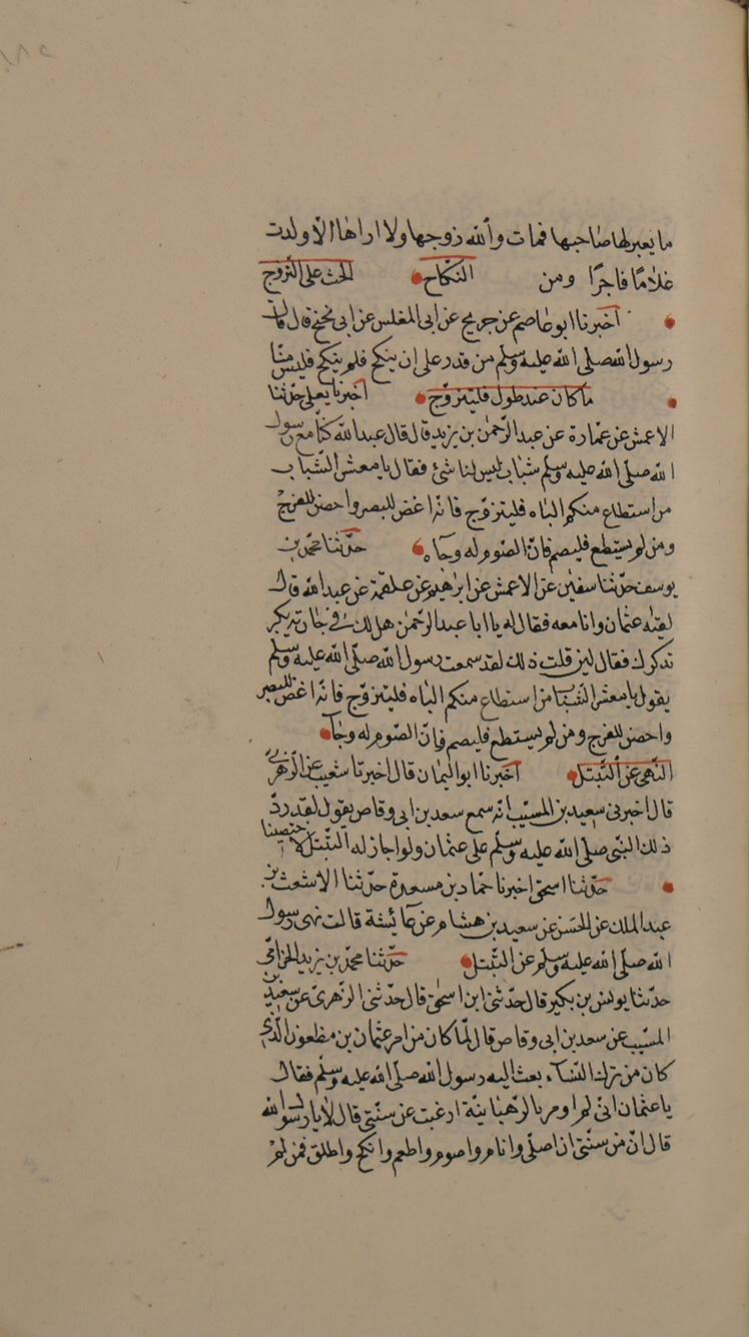 ما يعبر لها صاحبها فمات والله زوجها ولا اراها الا ولدت
غلامًا فاجرًا ومن النكاح الحث على التزوج
اخبرنا ابو عاصم عن جريج عن ابى المغلس عن ابى نجيح قال قال
رسول الله صلى الله عليه وسلم من قدر على ان ينكح فلم ينكح فليس منا
ما كان عند طول فليتزوج اخبرنا يعلى حدثنا
الاعمش عن عمارة عن عبد الرحمن بن يزيد قال قال عبد الله كنا مع رسول
الله صلى الله عليه وسلم شباب ليس لنا شئ فقال يا معشر الشباب
من استطاع منكم الباه فليتزوج فانه اغض للبصر واحصن للفرج
ومن لم يستطع فليصم فان الصوم له وجاء حدثنا محمد بن
يوسف حدثنا سفين عن الاعمش عن ابرهيم عن علقمة عن عبد الله قال
لقيه عثمان وانا معه فقال له يا ابا عبد الرحمن هل لك فى جارية بكر
تذكرك فقال لين قلت ذلك لقد سمعت رسول الله صلى الله عليه وسلم
يقول يا معشر الشباب من استطاع منكم الباه فليتزوج فانه اغض للبصر
واحصن للفرج ومن لم يستطع فليصم فان الصوم له وجآ
النهى عن التبتل اخبرنا ابو اليمان قال اخبرنا شعيب عن الزهرى
قال اخبرنى سعيد بن المسيب انه سمع سعد بن ابى وقاص يقول لقد رد
ذلك النبى صلى الله عليه وسلم على عثمان ولو اجاز له التبتل لاختصينا
حدثنا اسحق اخبرنا حماد بن مسعدة حدثنا الاشعث بن
عبد الملك عن الحسن عن سعيد بن هشام عن عائشة قالت نهى رسول
الله صلى الله عليه وسلم عن التبتل حدثنا محمد بن يزيد الحزامى
حدثنا يونس بن بكير قال حدثنى ابن اسحق قال حدثنى الزهرى عن سعيد بن
المسيب عن سعد بن ابى وقاص قال لما كان من امر عثمان بن مظعون الذى
كان من ترك النساء بعث اليه رسول الله صلى الله عليه وسلم فقال
يا عثمان انى لم اومر بالرهبانية ارغبت عن سنتى قال لا يا رسول الله
قال ان من سنتى ان اصلى وانام واصوم واطعم وانكح واطلق فمن لم